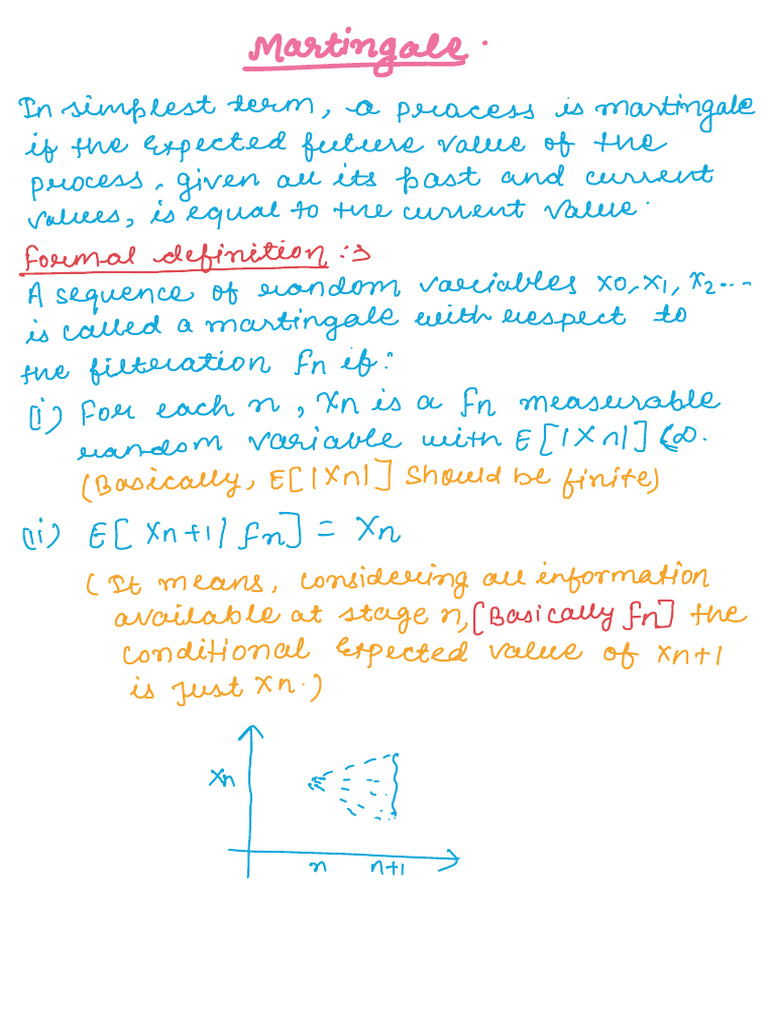 Martingale.
In simplest term, a process is martingale
if the Expected future value of the
process, given all its past and current
values, is equal to the current value.
Formal definition :→
A sequence of random variables X0, X1, X2...
is called a martingale with respect to
the filteration Fn if:
(i) For each n, Xn is a Fn measurable
random variable with E[|Xn|] < ∞.
(Basically, E[|Xn|] should be finite)
(ii) E[Xn+1 | Fn] = Xn
(It means, considering all information
available at stage n, [Basically Fn] the
conditional Expected value of Xn+1
is just Xn.)
Xn
n n+1